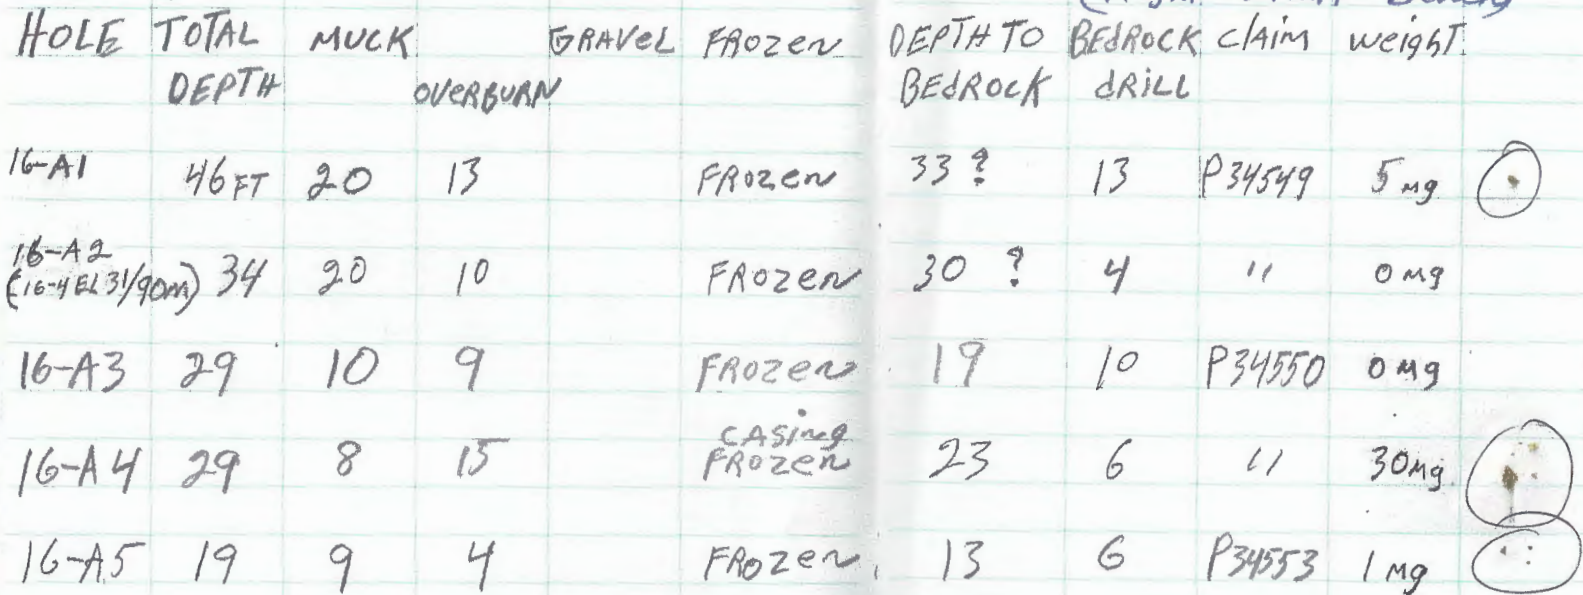 HOLE TOTAL DEPTH MUCK OVERBURN GRAVEL FROZEN DEPTH TO BEDROCK BEDROCK DRILL CLAIM WEIGHT
16-A1 46 FT 20 13 FROZEN 33 ? 13 P34549 5 mg
16-A2 34 20 10 FROZEN 30 ? 4 " 0 mg
16-A3 29 10 9 FROZEN 19 10 P34550 0 mg
16-A4 29 8 15 CASING FROZEN 23 6 " 30 mg
16-A5 19 9 4 FROZEN 13 6 P34553 1 mg